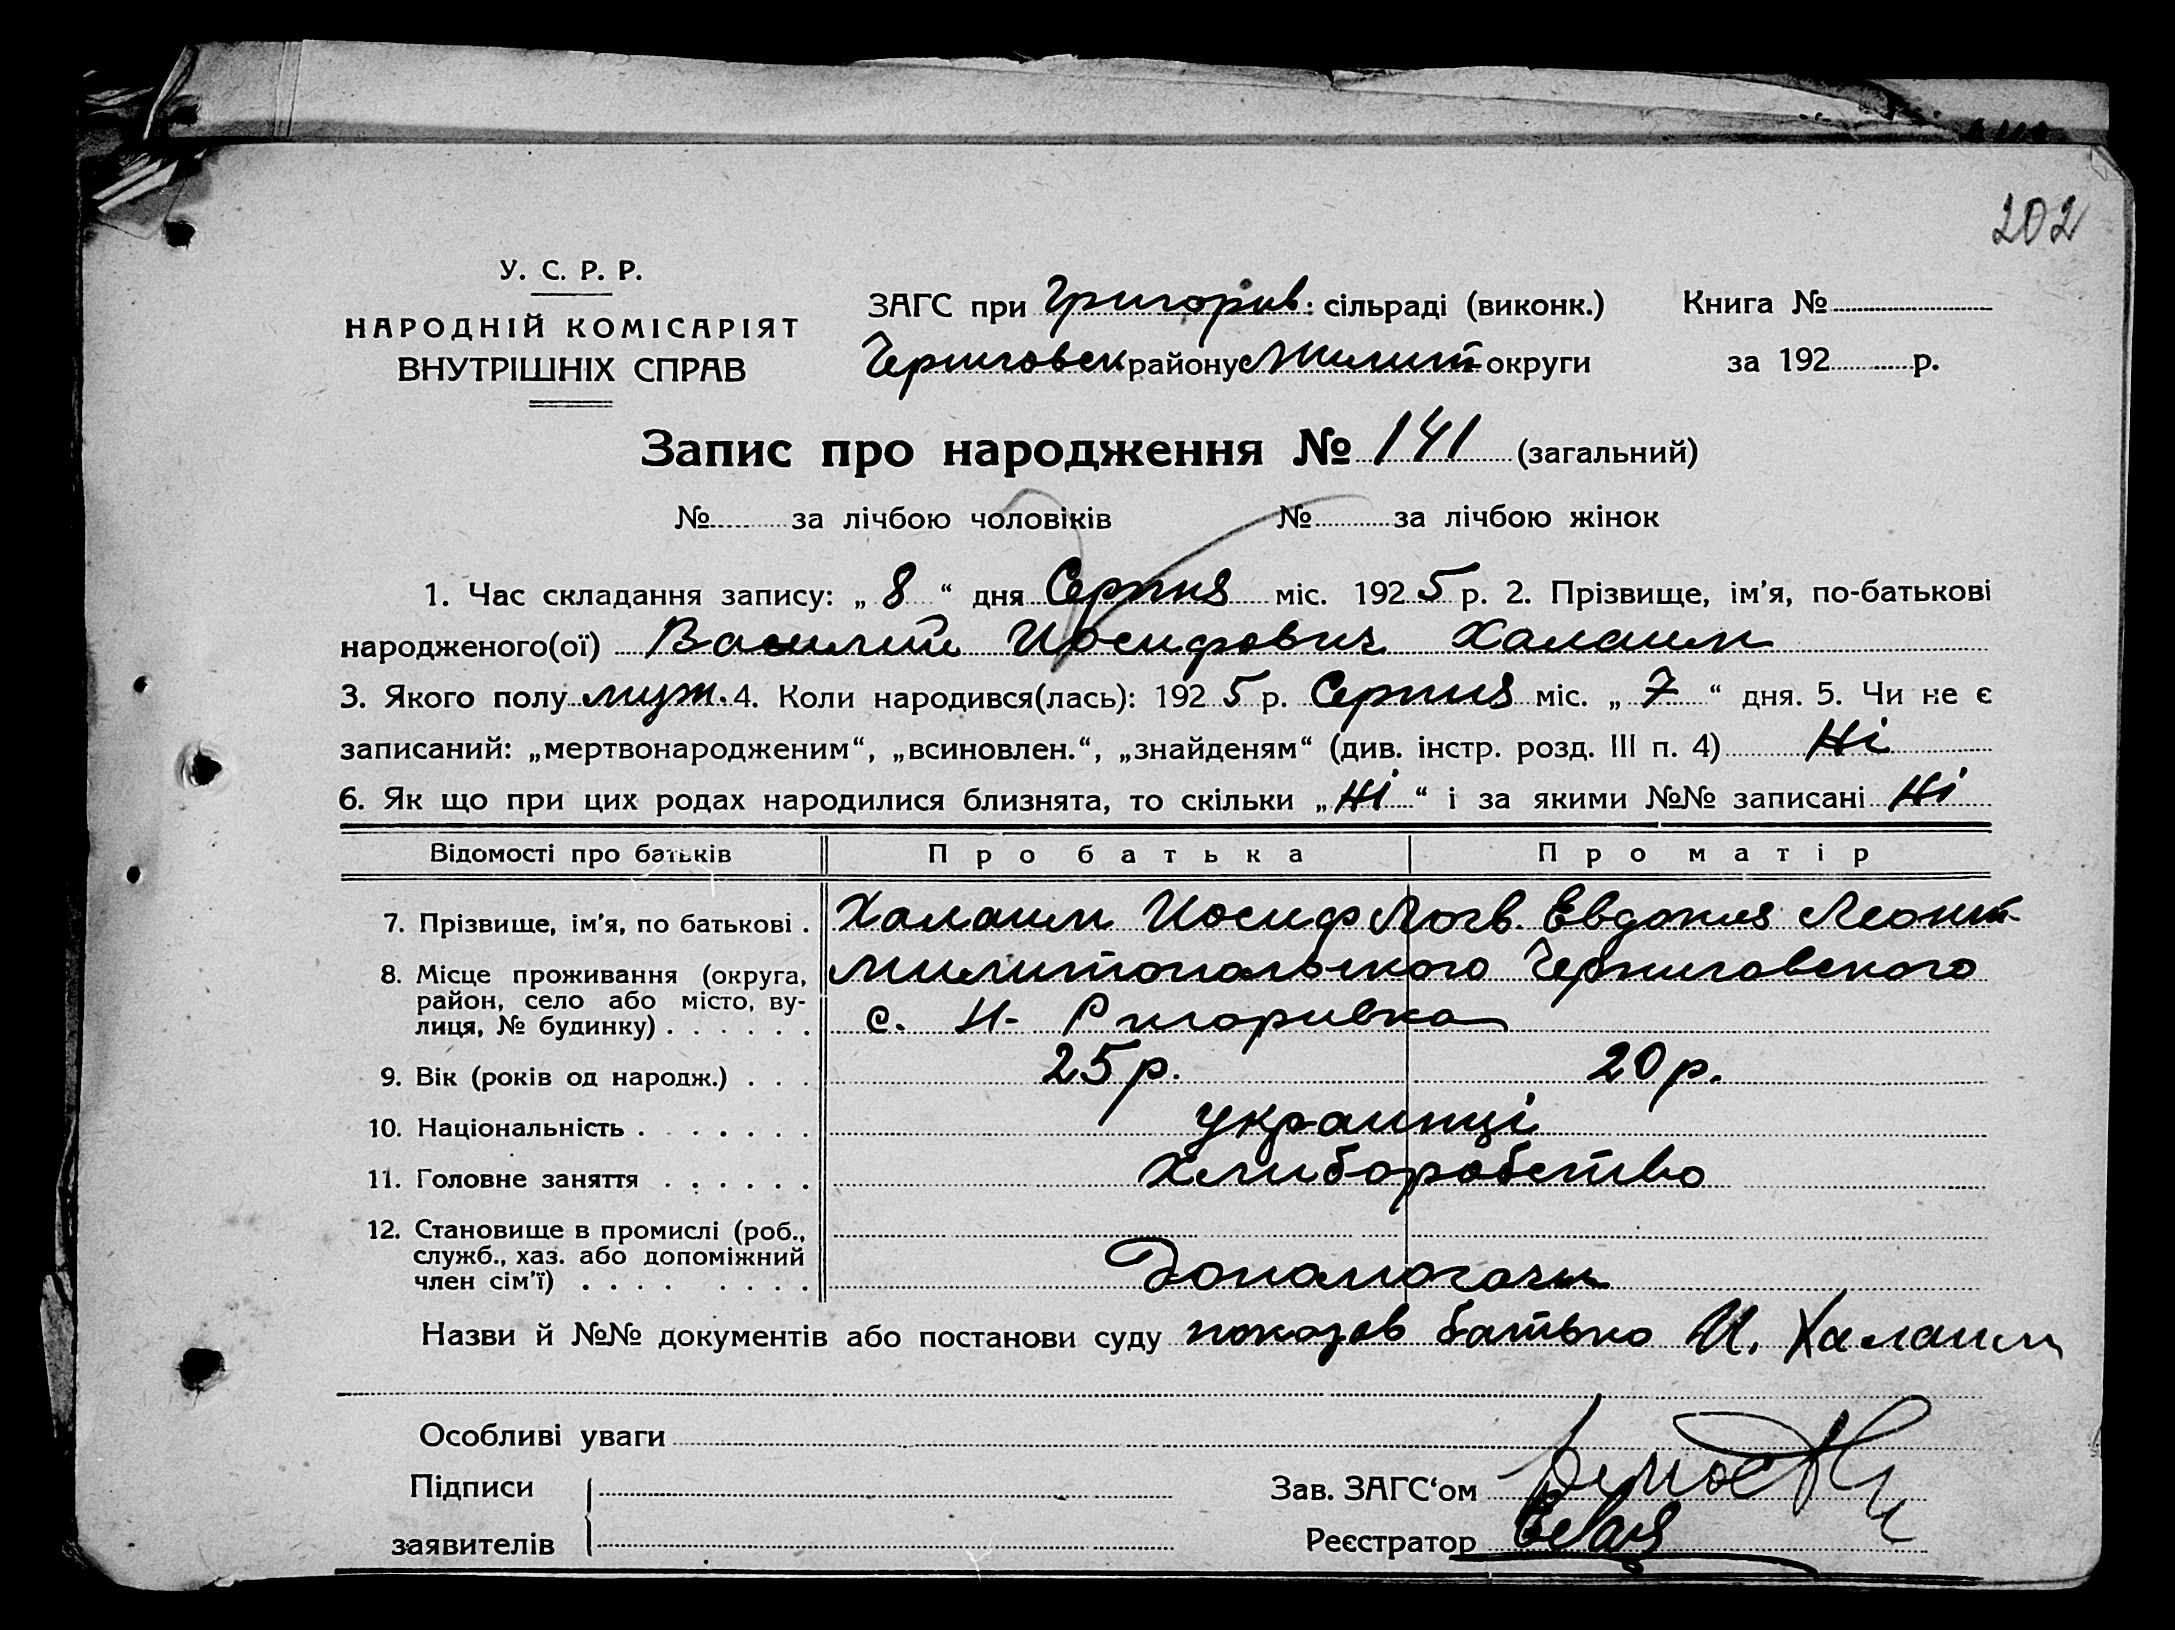 202
У. С. Р. Р.
НАРОДНІЙ КОМІСАРІЯТ
ВНУТРІШНІХ СПРАВ
ЗАГС при Григорив. сільраді (виконк.) Книга №
Черниговск району Мелит округи за 192 р.
Запис про народження № 141 (загальний)
№ за лічбою чоловіків № за лічбою жінок
1. Час складання запису: „ 8 “ дня Серпня міс. 192 5 р. 2. Прізвище, ім'я, по-батькові
народженого(ої) Василий Иосифович Халашм
3. Якого полу муж. 4. Коли народився(лась): 192 5 р. Серпня міс. „ 7 “ дня. 5. Чи не є
записаний: „мертвонародженим“, „всиновлен.“, „знайденям“ (див. інстр. розд. III п. 4) Ні
6. Як що при цих родах народилися близнята, то скільки „ Ні “ і за якими №№ записані Ні
Відомості про батьків Про батька Про матір
7. Прізвище, ім'я, по батькові . Иосиф Логв. Евдокия Леонт
8. Місце проживання (округа, Милитопольского Черниговского
район, село або місто, ву-
лиця, № будинку) . . . . . . с. Н-
9. Вік (років од народж.) . . . 25 р. 20 р.
10. Національність . . . . . . . украинці
11. Головне заняття . . . . . . хлиборобство
12. Становище в промислі (роб.,
служб., хаз. або допоміжний
член сім'ї) . . . . . . . . Допомогачи
Назви й №№ документів або постанови суду показав батько И.
Особливі уваги
Підписи Зав. ЗАГС‘ом
заявителів Реєстратор